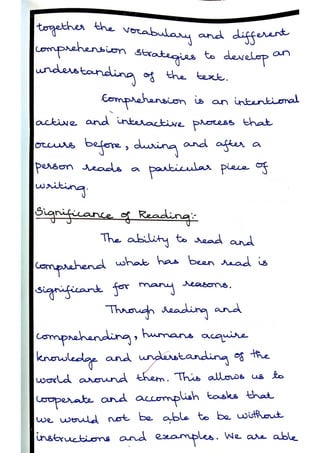 together the vocabulary and different
comprehension strategies to develop an
understanding of the text.
Comprehension is an intentional
active and interactive process that
occurs before, during and after a
person reads a particular piece of
writing.
Significance of Reading:-
The ability to read and
comprehend what has been read is
significant for many reasons.
Through reading and
comprehending, humans acquire
knowledge and understanding of the
world around them. This allows us to
cooperate and accomplish tasks that
we would not be able to be without
instructions and examples. We are able